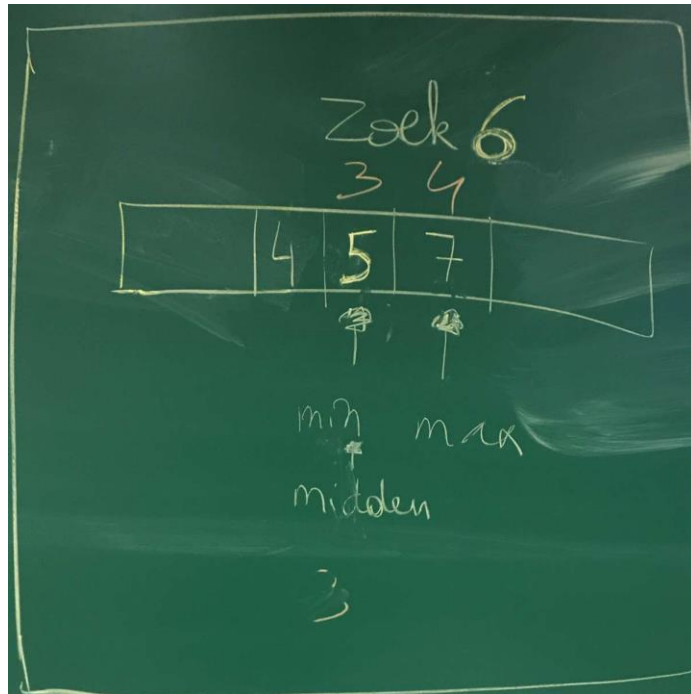 Zoek 6
3 4
4 5 7
min max
midden
3